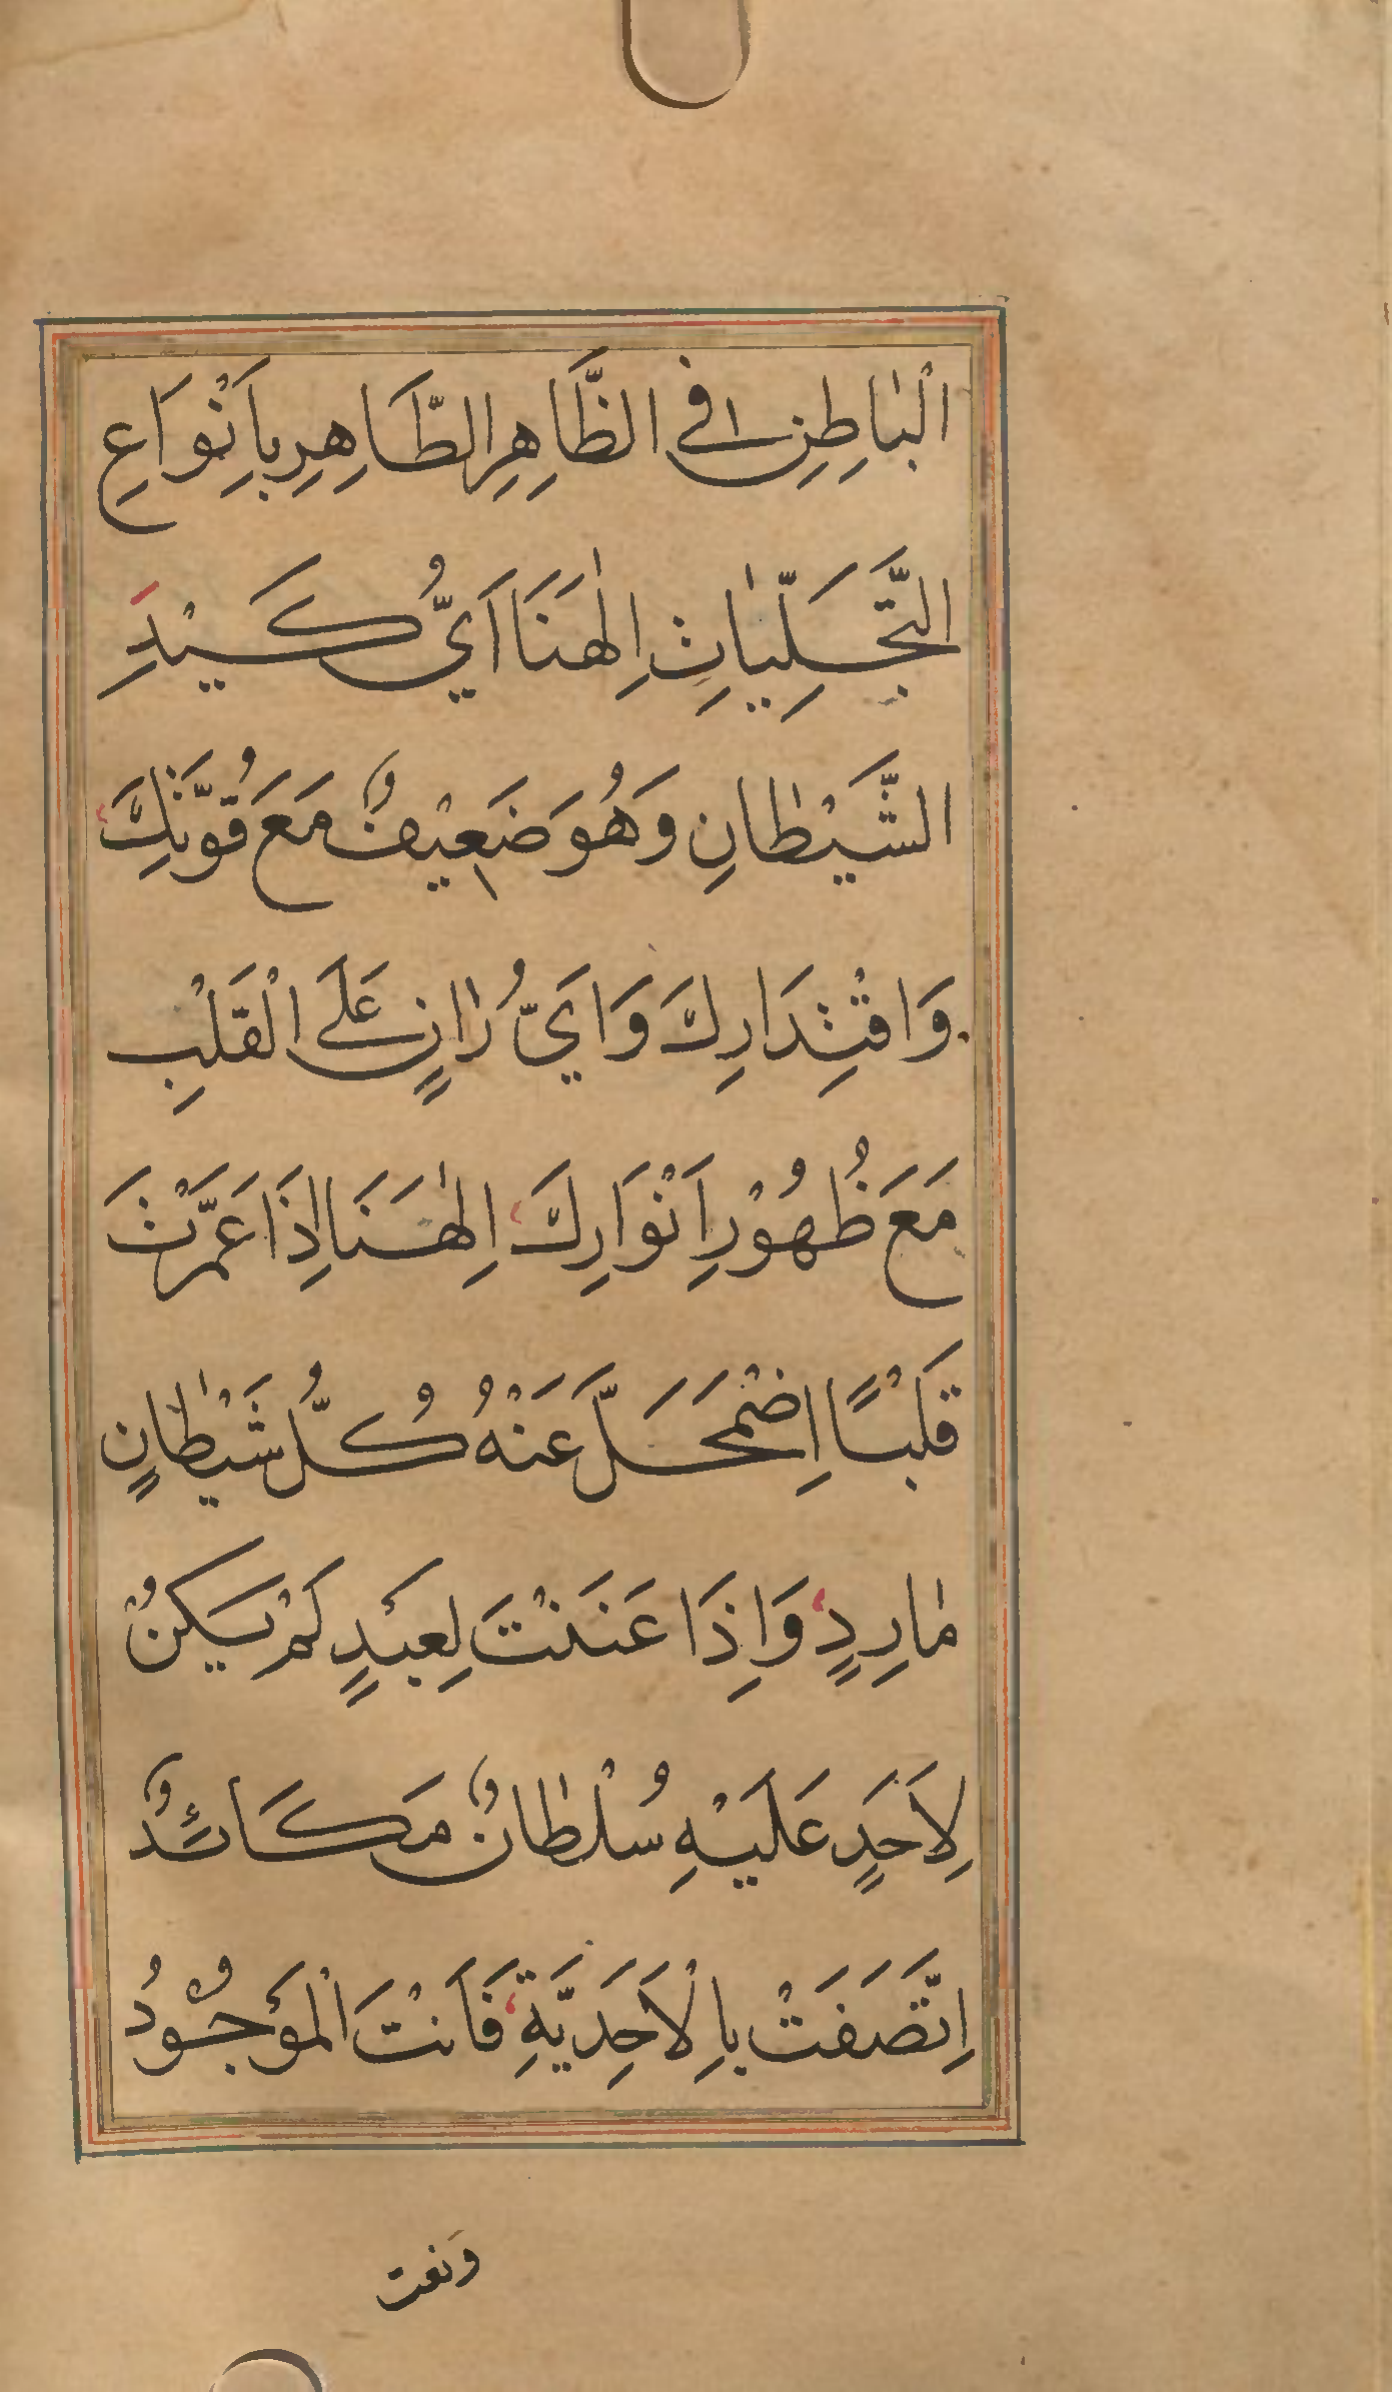 الْبَاطِنِ فِي الظَّاهِرِ الطَّاهِرِ بِاَنْوَاعِ
التَّجَلِّيَاتِ اِلٰهَنَا اَيُّ كَيْدِ
الشَّيْطَانِ وَهُوَ ضَعِيْفٌ مَعَ قُوَّتِكَ
وَاقْتِدَارِكَ وَاَيُّ رَانٍ عَلَى الْقَلْبِ
مَعَ ظُهُوْرِ اَنْوَارِكَ اِلٰهَنَا اِذَا عَمَّرْتَ
قَلْبًا اِضْمَحَلَّ عَنْهُ كُلُّ شَيْطَانٍ
مَارِدٍ وَاِذَا عَنَنْتَ لِعَبْدٍ لَمْ يَكُنْ
لِاَحَدٍ عَلَيْهِ سُلْطَانٌ مَكَائِدٌ
اِتَّصَفْتَ بِالْاَحَدِيَّةِ فَاَنْتَ الْمَوْجُوْدُ
وَنعت